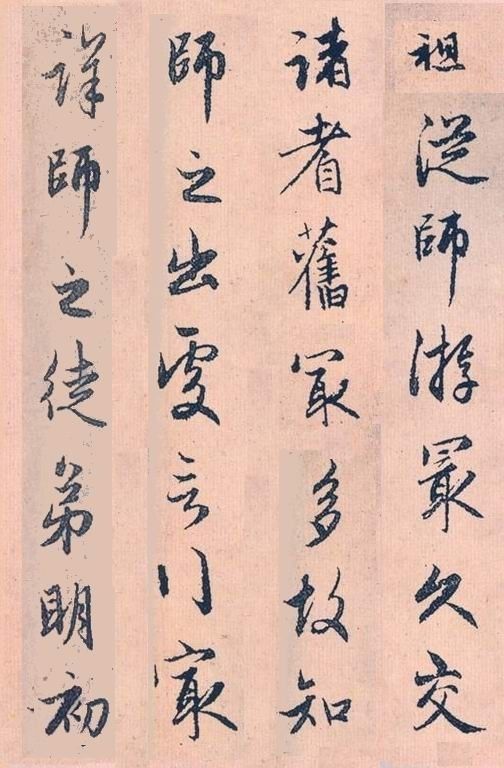 祖從師游最久交
諸耆舊冣多故知
師之出處言行冣
詳師之徒弟明初